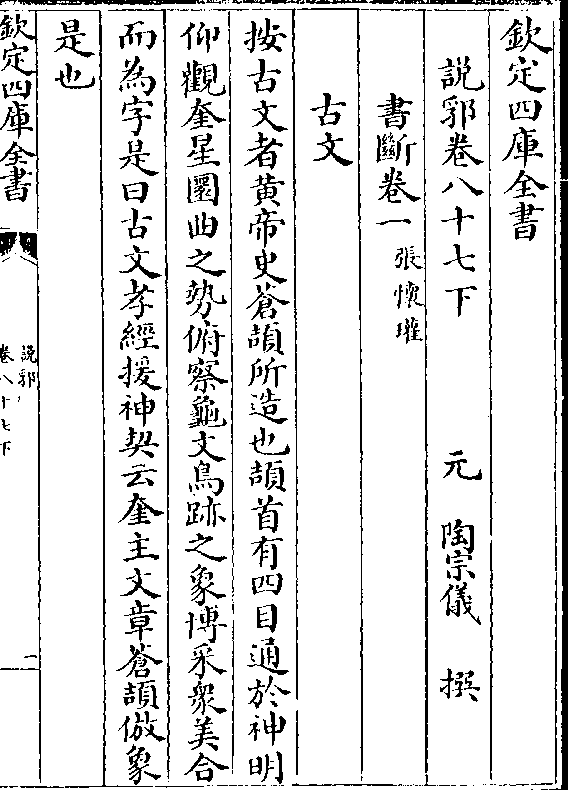 欽定四庫全書
說郛卷八十七下　元　陶宗儀　撰
書斷卷一　張懷瓘
古文
按古文者黄帝史蒼頡所造也頡首有四目通於神明
仰觀奎星圜曲之勢俯察龜文鳥跡之象博采衆美合
而為字是曰古文孝經援神契云奎主文章蒼頡倣象
是也
欽定四庫全書
說郛
卷八十七下
一